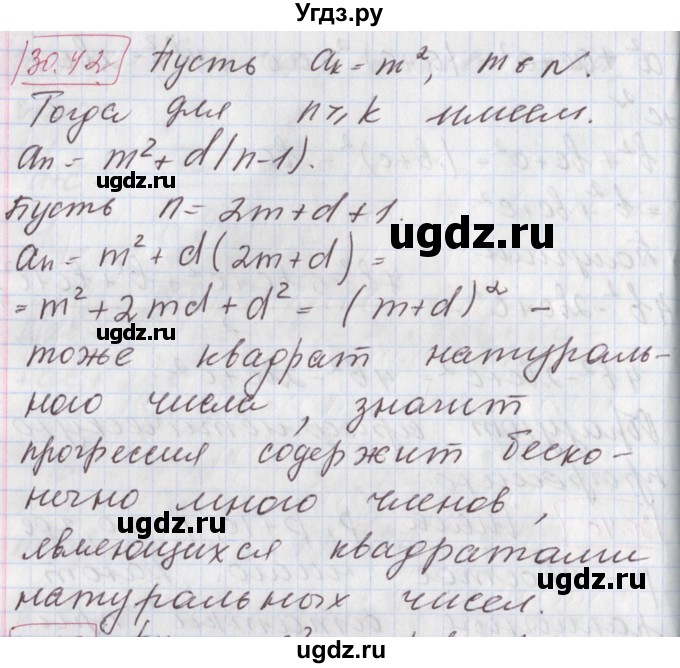 Угдз.ру
30.42 Пусть aₖ = m², m ϵ N.
Тогда для n ⩾ k имеем.
aₙ = m² + d(n-1).
ugdz.ru
Пусть n = 2m + d + 1.
ugdz.ru
aₙ = m² + d(2m + d) =
= m² + 2md + d² = (m + d)² –
ugdz.ru
тоже квадрат натураль-
ного числа, значит
прогрессия содержит беско-
нечно много членов,
ugdz.ru
являющихся квадратами
ugdz.ru
натуральных чисел.
ugdz.ru